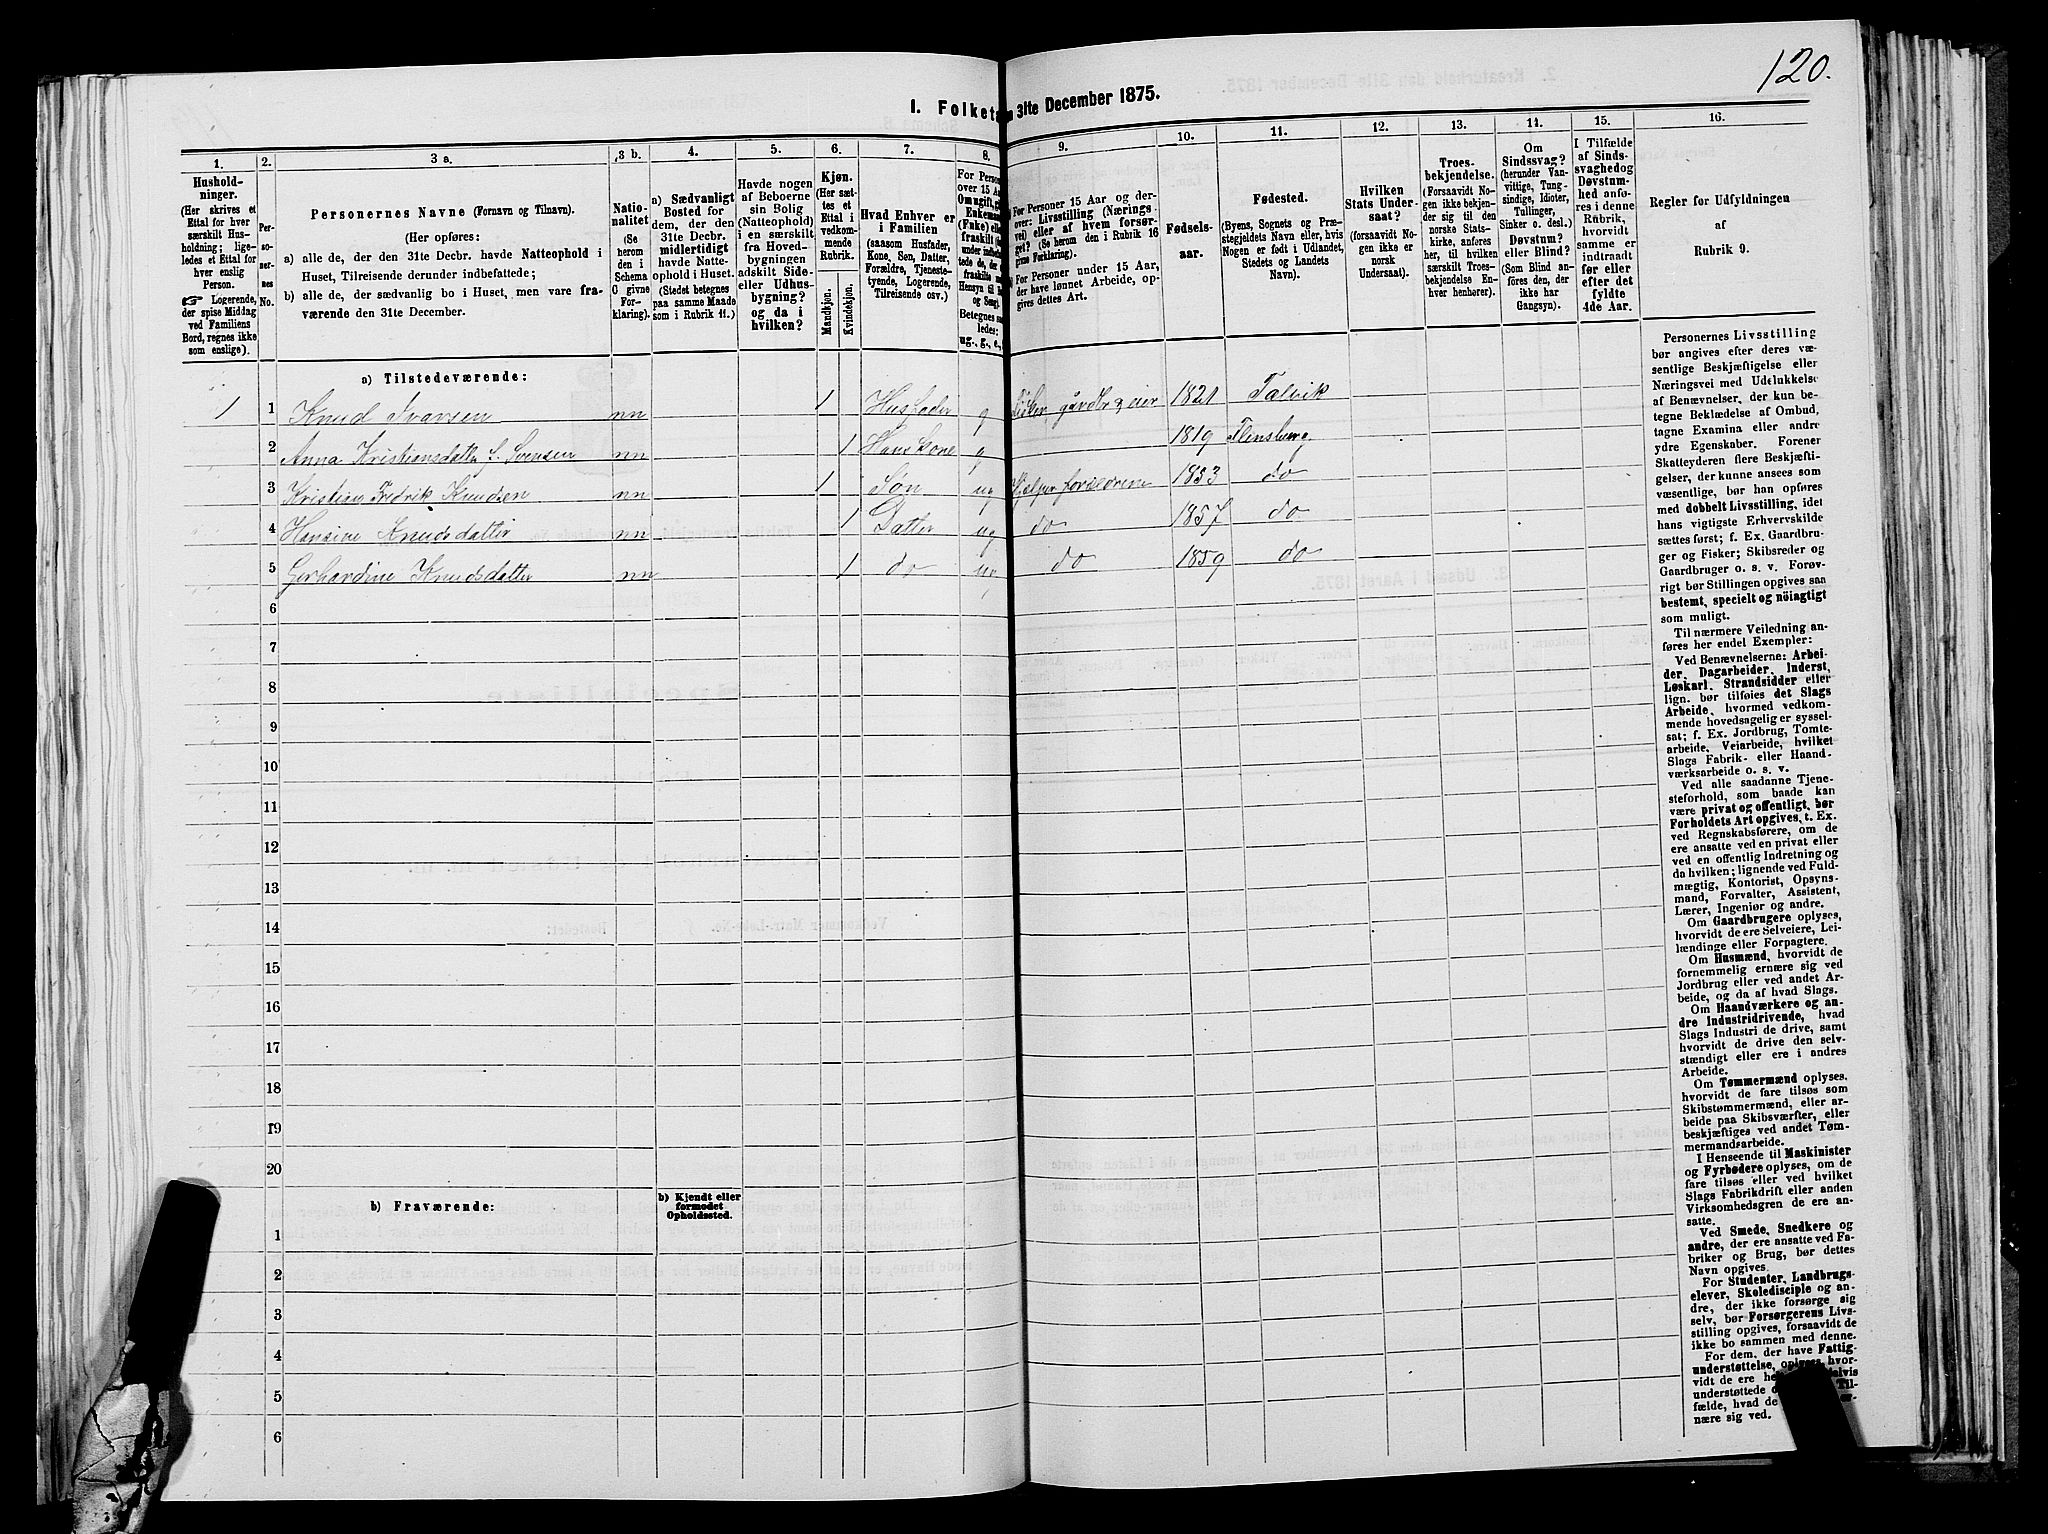 120.
I. Folketa
n 31te December 1875.
1. 2. 3 a. 3 b. 4. 5. 6. 7. 8. 9. 10. 11. 12. 13. 14. 15. 16.
Hushold-
ninger.
(Her skrives et
Ettal for hver
særskilt Hus-
holdning; lige-
ledes et Ettal for
hver enslig
Person.
☞ Logerende,
der spise Middag
ved Familiens
Bord, regnes ikke
som enslige).
Per-
so-
ner-
nes
No.
Personernes Navne (Fornavn og Tilnavn).
(Her opføres:
a) alle de, der den 31te Decbr. havde Natteophold i
Huset, Tilreisende derunder indbefattede;
b) alle de, der sædvanlig bo i Huset, men vare fra-
værende den 31te December.
Natio-
nalitet
(Se
herom
den i
Schema
C givne
For-
klaring).
a) Sædvanligt
Bosted for
dem, der den
31te Decbr.
midlertidigt
havde Natte-
ophold i Huset.
(Stedet betegnes
paa samme Maade
som i Rubrik 11.)
Havde nogen
af Beboerne
sin Bolig
(Natteophold)
i en særskilt
fra Hoved-
bygningen
adskilt Side-
eller Udhus-
bygning?
og da i
hvilken?
Kjøn.
(Her sæt-
tes et
Ettal i
vedkom-
mende
Rubrik.
Mandkjøn.
Kvindekjøn.
Hvad Enhver er
i Familien
(saasom Husfader,
Kone, Søn, Datter,
Forældre, Tjeneste-
tyende, Logerende,
Tilreisende osv.)
For Person
over 15 Aa
Om ugift, gi
Enkeman
(Enke) elle
fraskilt
Betegnes saa
ledes:
ug., g., e.,
For Personer 15 Aar og der-
over: Livsstilling (Nærings-
vei) eller af hvem forsør-
get? (Se herom den i Rubrik 16
givne Forklaring).
For Personer under 15 Aar,
der have lønnet Arbeide, op-
gives dettes Art.
Fødsels-
aar.
Fødested.
(Byens, Sognets og Præ-
stegjeldets Navn eller, hvis
Nogen er født i Udlandet,
Stedets og Landets
Navn).
Hvilken
Stats Under-
saat?
(forsaavidt No-
gen ikke er
norsk
Undersaat).
Troes-
bekjendelse.
(Forsaavidt No-
gen ikke bekjen-
der sig til den
norske Stats-
kirke, anføres
her, til hvilken
særskilt Troes-
bekjendelse En-
hver henhører).
Om
Sindssvag?
(herunder Van-
vittige, Tung-
sindige, Idioter,
Tullinger,
Sinker o. desl.)
Døvstum?
eller Blind?
(Som Blind an-
føres den, der
ikke har
Gangsyn).
I Tilfælde
af Sinds-
svaghedog
Døvstum-
hed anfø-
res i denne
Rubrik,
hvorvidt
samme er
indtraadt
før eller
efter det
fyldte
4de Aar.
Regler for Udfyldningen
af
Rubrik 9.
a) Tilstedeværende:
1 1 Knud Ivarsen nn 1 Husfader g Fisker, gårdbr & eier 1821 Talvik
2 Anna Kristiansdatter f. Svensen nn 1 Hans kone g 1819 Flensburg
3 Kristian Fredrik Knudsen nn 1 Søn ug Hjelper forældrene 1853 do
4 Hansine Knudsdatter nn 1 Datter ug do 1857 do
5 Gerhardine Knudsdatter nn 1 do ug do 1859 do
6
7
8
9
10
11
12
13
14
15
16
17
18
19
20
b) Fraværende:
b) Kjendt eller
formodet
Opholdssted.
1
2
3
4
5
6
Personernes Livsstilling
bør angives efter deres væ-
sentlige Beskjæftigelse eller
Næringsvei med Udelukkelse
af Benævnelser, der kun be-
tegne Beklædelse af Ombud,
tagne Examina eller andre
ydre Egenskaber. Forener
Skatteyderen flere Beskjæfti-
gelser, der kunne ansees som
væsentlige, bør han opføres
med dobbelt Livsstilling, idet
hans vigtigste Erhvervskilde
sættes først; f. Ex. Gaardbru-
ger og Fisker; Skibsreder og
Gaardbruger o. s. v. Forøv-
rigt bør Stillingen opgives saa
bestemt, specielt og nöiagtigt
som muligt.
Til nærmere Veiledning an-
føres her endel Exempler:
Ved Benævnelserne: Arbei-
der, Dagarbeider, Inderst,
Løskarl, Strandsidder eller
lign. bør tilføies det Slags
Arbeide, hvormed vedkom-
mende hovedsagelig er syssel-
sat; f. Ex. Jordbrug, Tomte-
arbeide, Veiarbeide, hvilket
Slags Fabrik- eller Haand-
værksarbeide o. s. v.
Ved alle saadanne Tjene-
steforhold, som baade kan
være privat og offentligt, bør
Forholdets Art opgives, t. Ex.
ved Regnskabsførere, om de
ere ansatte ved en privat eller
ved en offentlig Indretning og
da hvilken; lignende ved Fuld-
mægtig, Kontorist, Opsyns-
mand, Forvalter, Assistent,
Lærer, Ingeniør og andre.
Om Gaardbrugere oplyses,
hvorvidt de ere Selveiere, Lei-
lændinge eller Forpagtere.
Om Husmænd, hvorvidt de
fornemmelig ernære sig ved
Jordbrug eller ved andet Ar-
beide, og da af hvad Slags.
Om Haandværkere og an-
dre Industridrivende, hvad
Slags Industri de drive, samt
hvorvidt de drive den selv-
stændigt eller ere i andres
Arbeide.
Om Tømmermænd oplyses,
hvorvidt de fare tilsøs som
Skibstømmermænd, eller ar-
beide paa Skibsværfter, eller
beskjæftiges ved andet Tøm-
mermandsarbeide.
I Henseende til Maskinister
og Fyrbødere oplyses, om de
fare tilsøs eller ved hvilket
Slags Fabrikdrift eller anden
Virksomhedsgren de ere an-
satte.
Ved Smede, Snedkere og
andre, der ere ansatte ved Fa-
briker og Brug, bør dettes
Navn opgives.
For Studenter, Landbrugs-
elever, Skoledisciple og an-
dre, der ikke forsørge sig
selv, bør Forsørgerens Livs-
stilling opgives, forsaavidt de
ikke bo sammen med denne.
For dem, der have Fattig-
understøttelse, oplyses, hvor-
vidt de ere
understøttede
fælde, hvad de
nære sig ved.